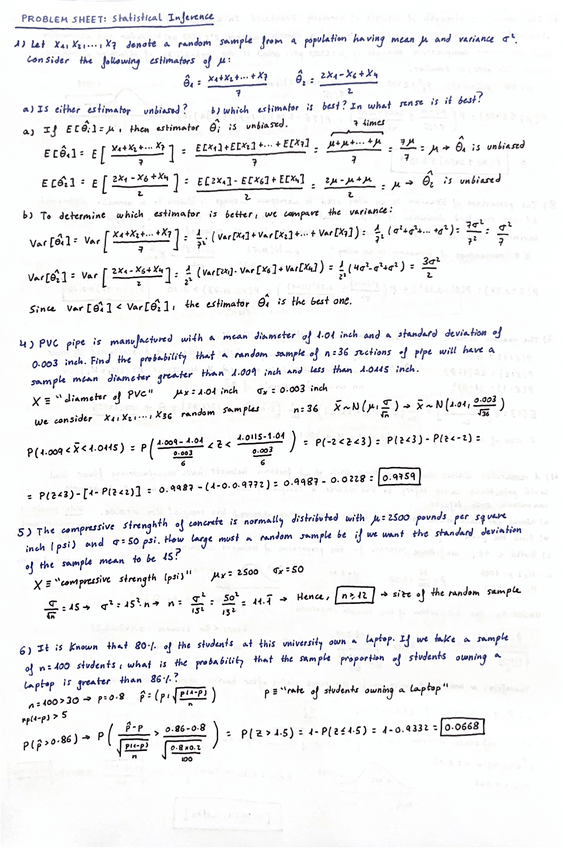 PROBLEM SHEET: Statistical Inference
1) Let X1, X2,..., X7 denote a random sample from a population having mean μ and variance σ².
Consider the following estimators of μ:
θ̂1 = (X1+X2+...+X7)/7    θ̂2 = (2X1-X6+X4)/2
a) Is either estimator unbiased?    b) Which estimator is best? In what sense is it best?
a) If E[θ̂i]=μ, then estimator θ̂i is unbiased.    7 times
E[θ̂1] = E[(X1+X2+...X7)/7] = (E[X1]+E[X2]+...+E[X7])/7 = (μ+μ+...+μ)/7 = 7μ/7 = μ → θ̂1 is unbiased
E[θ̂2] = E[(2X1-X6+X4)/2] = (E[2X1]-E[X6]+E[X4])/2 = (2μ-μ+μ)/2 = μ → θ̂2 is unbiased
b) To determine which estimator is better, we compare the variance:
Var[θ̂1] = Var[(X1+X2+...X7)/7] = 1/7² (Var[X1]+Var[X2]+...+Var[X7]) = 1/7² (σ²+σ²+...σ²) = 7σ²/7² = σ²/7
Var[θ̂2] = Var[(2X1-X6+X4)/2] = 1/2² (Var[2X1]-Var[X6]+Var[X4]) = 1/2² (4σ²-σ²+σ²) = 3σ²/2
Since Var[θ̂1] < Var[θ̂2], the estimator θ̂1 is the best one.
4) PVC pipe is manufactured with a mean diameter of 1.01 inch and a standard deviation of
0.003 inch. Find the probability that a random sample of n=36 sections of pipe will have a
sample mean diameter greater than 1.009 inch and less than 1.0115 inch.
X ≡ "diameter of PVC"    μx = 1.01 inch    σx = 0.003 inch
We consider X1, X2,..., X36 random samples    n=36    X̄~N(μ, σ/√n) → X̄~N(1.01, 0.003/√36)
P(1.009<X̄<1.0115) = P((1.009-1.01)/(0.003/6) < Z < (1.0115-1.01)/(0.003/6)) = P(-2<Z<3) = P(Z<3)-P(Z<-2) =
= P(Z<3)-[1-P(Z<2)] = 0.9987-(1-0.0.9772) = 0.9987-0.0228 = 0.9759
5) The compressive strenghth of concrete is normally distributed with μ=2500 pounds per square
inch (psi) and σ=50 psi. How large must a random sample be if we want the standard deviation
of the sample mean to be 15?
X ≡ "compressive strength (psi)"    μx = 2500    σx = 50
σ/√n = 15 → σ² = 15²·n → n = σ²/15² = 50²/15² = 11.1̄ → Hence, n ≥ 12 → size of the random sample
6) It is known that 80% of the students at this university own a laptop. If we take a sample
of n=100 students, what is the probability that the sample proportion of students owning a
laptop is greater than 86%?
n=100>30 → p=0.8    p̂=(p, √(p(1-p)/n))    p ≡ "rate of students owning a laptop"
np(1-p) > 5
P(p̂>0.86) → P((p̂-p)/√(p(1-p)/n) > (0.86-0.8)/√(0.8x0.2/100)) = P(Z>1.5) = 1-P(Z≤1.5) = 1-0.9332 = 0.0668